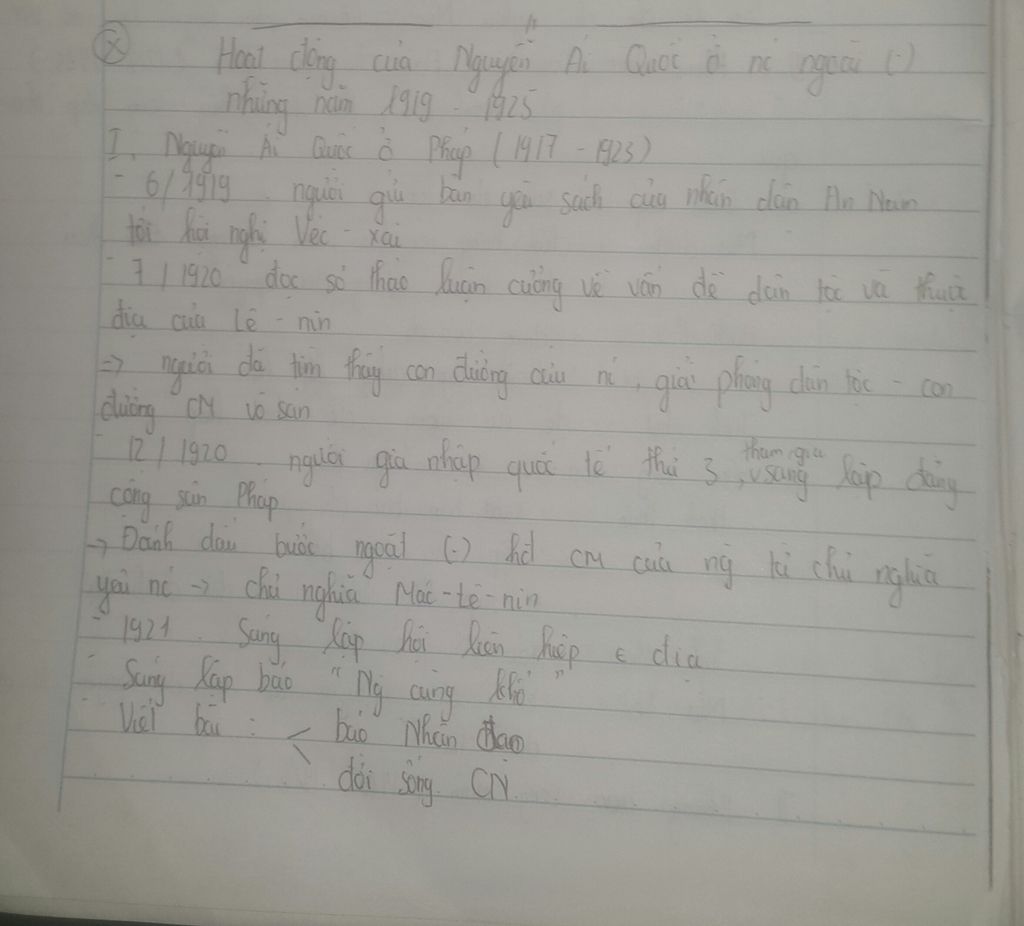 Ⓧ Hoạt động của Nguyễn Ái Quốc ở nc ngoài (-)
những năm 1919 - 1925
I. Nguyễn Ái Quốc ở Pháp (1917 - 1923)
- 6/1919. người gửi bản yêu sách của nhân dân An Nam
tới hội nghị Véc-xai
- 7/1920 đọc sơ thảo luận cương về vấn đề dân tộc và thuộc
địa của Lê-nin
=> người đã tìm thấy con đường cứu nc, giải phóng dân tộc - con
đường CM vô sản
- 12/1920. người gia nhập quốc tế thứ 3, tham gia sáng lập đảng
cộng sản Pháp
-> Đánh dấu bước ngoặt (-) hđ CM của ng từ chủ nghĩa
yêu nc -> chủ nghĩa Mác-Lê-nin
- 1921. Sáng lập hội liên hiệp ϵ địa
- Sáng lập báo "Ng cùng khổ"
- Viết bài: < báo Nhân đạo
đời sống CN